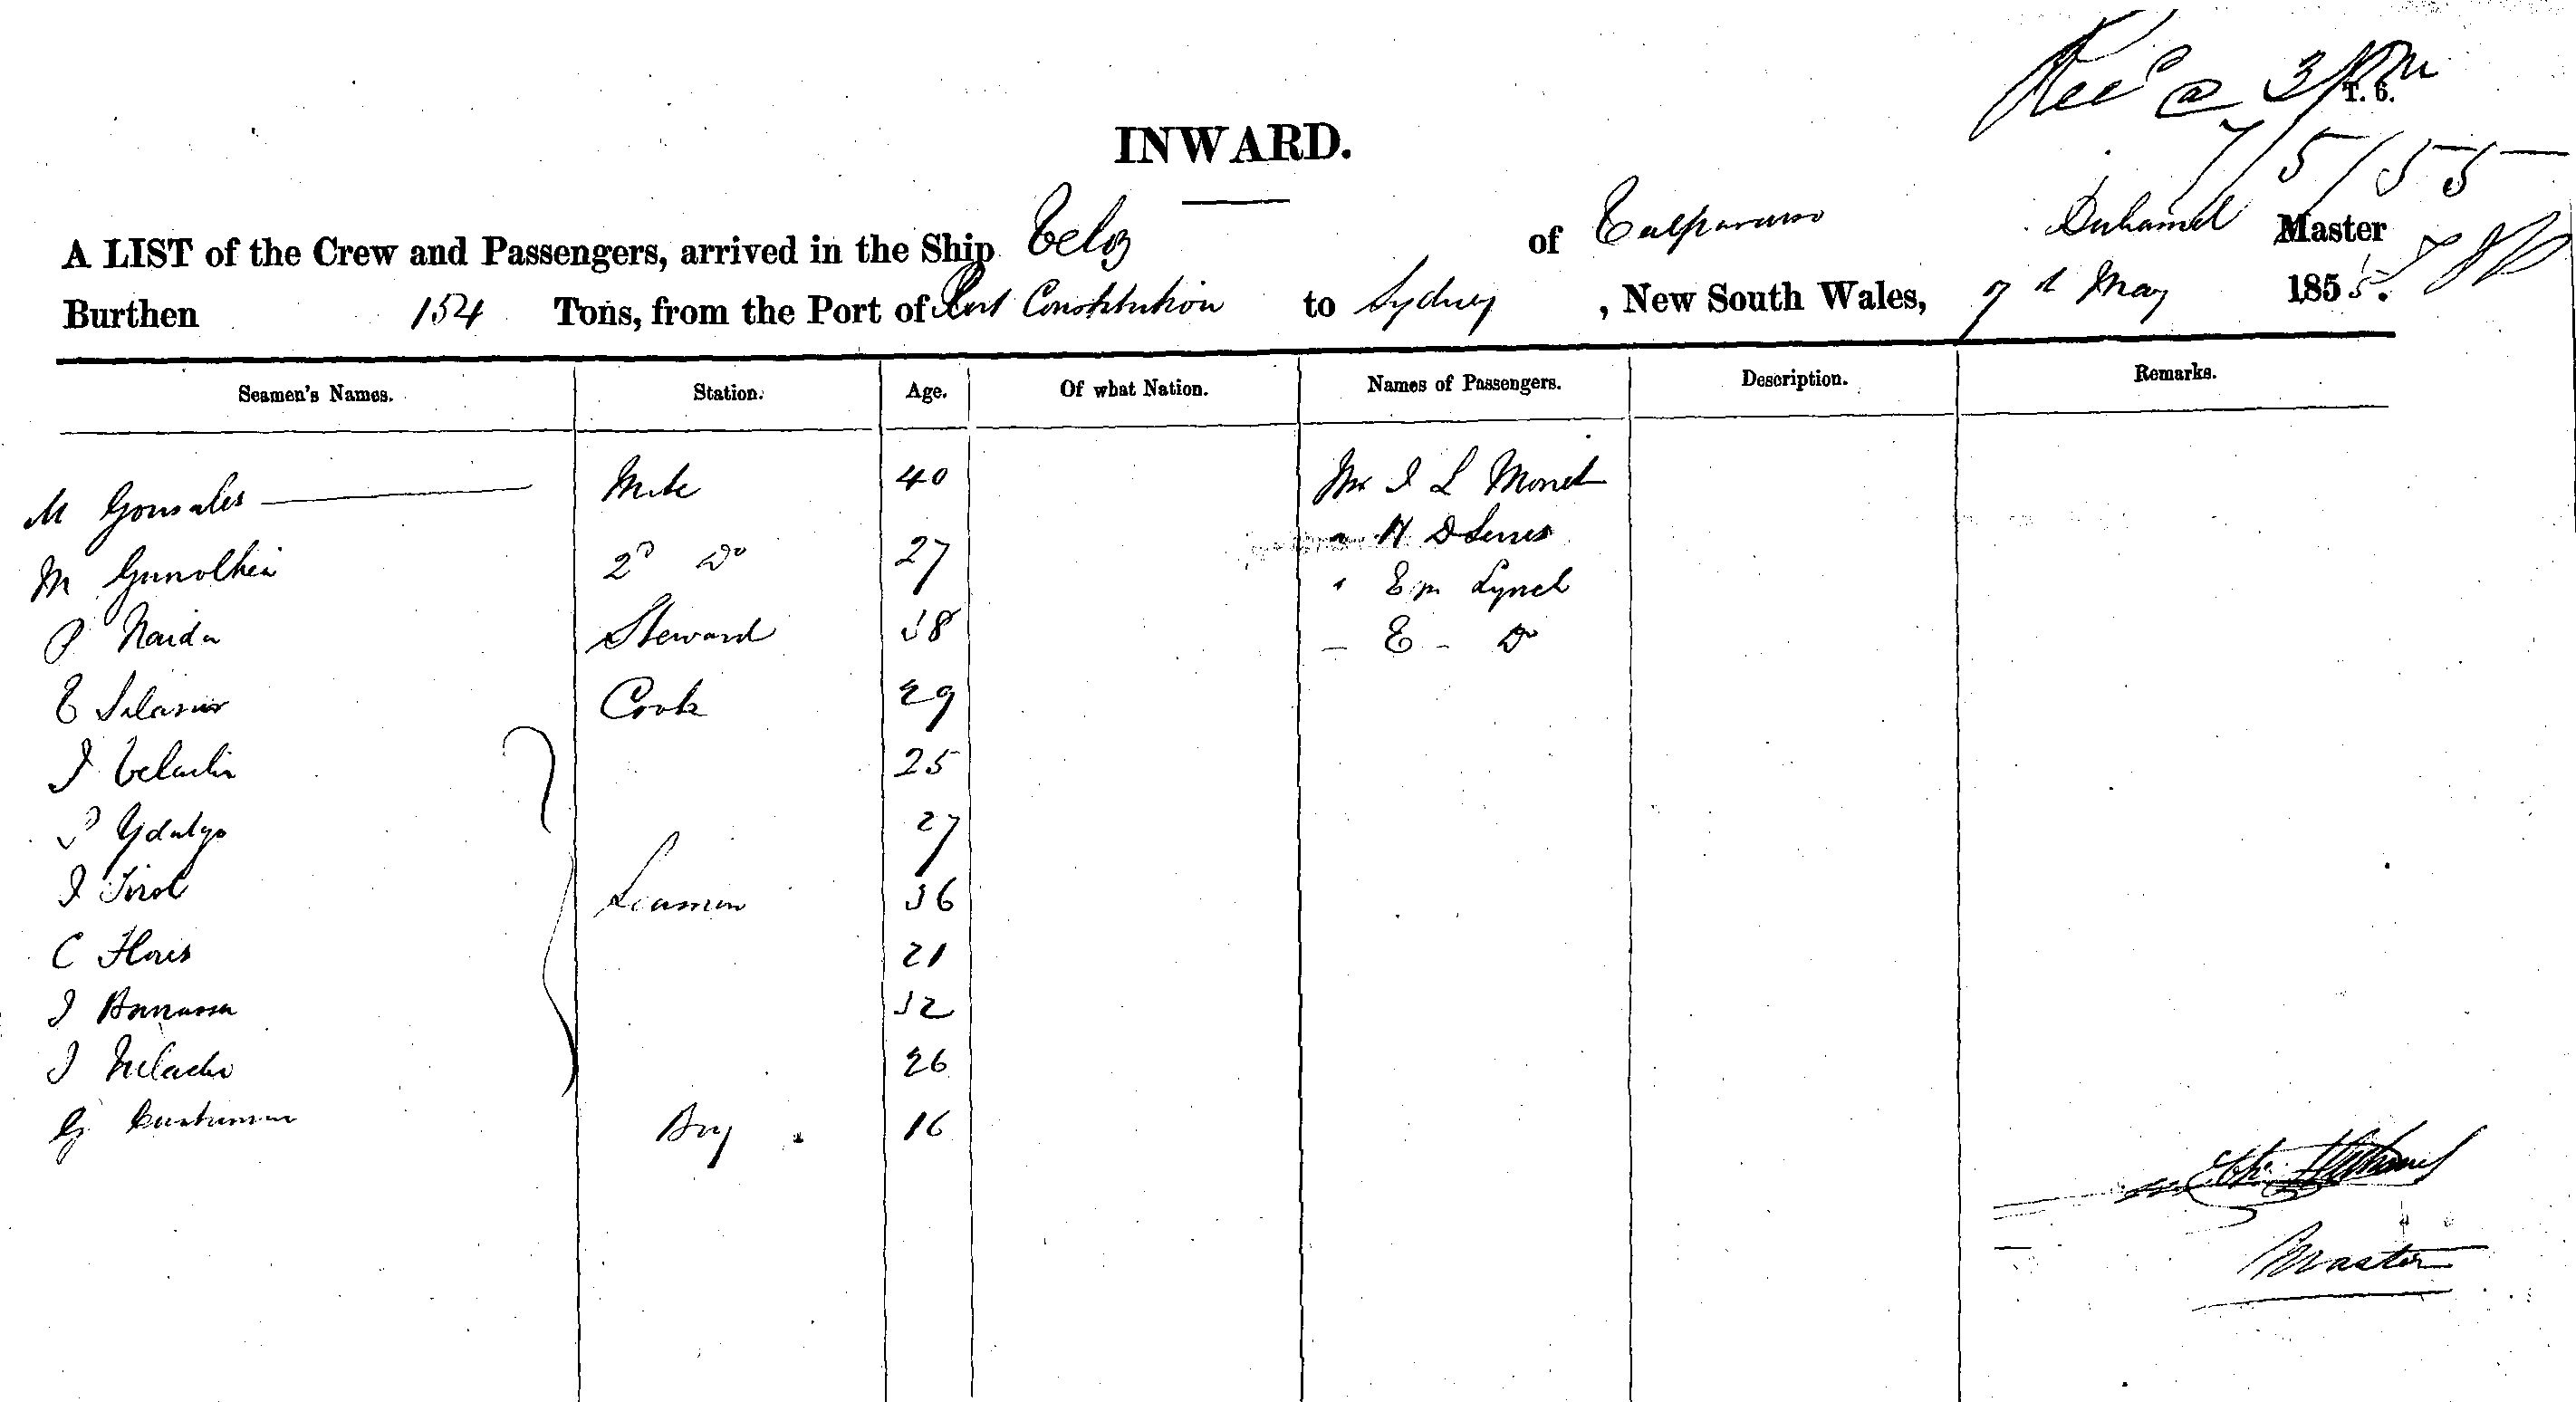 Recd @ 3 PM
T. 6.
7/5/55
INWARD.
A LIST of the Crew and Passengers, arrived in the Ship Veloz of Valparaiso Duhamel Master
Burthen 154 Tons, from the Port of Port Constitution to Sydney, New South Wales, 7th May 1855.
Seamen's Names. Station. Age. Of what Nation. Names of Passengers. Description. Remarks.
M Gonsales Mate 40 Mr I L Monet
M 2d Do 27 " H
P Steward 38 " E M Lynch
E Cook 29 " E " Do
J 25
P Ydalgo 27
J Seamen 36
C Flores 21
J 32
J 26
G Boy 16
Master